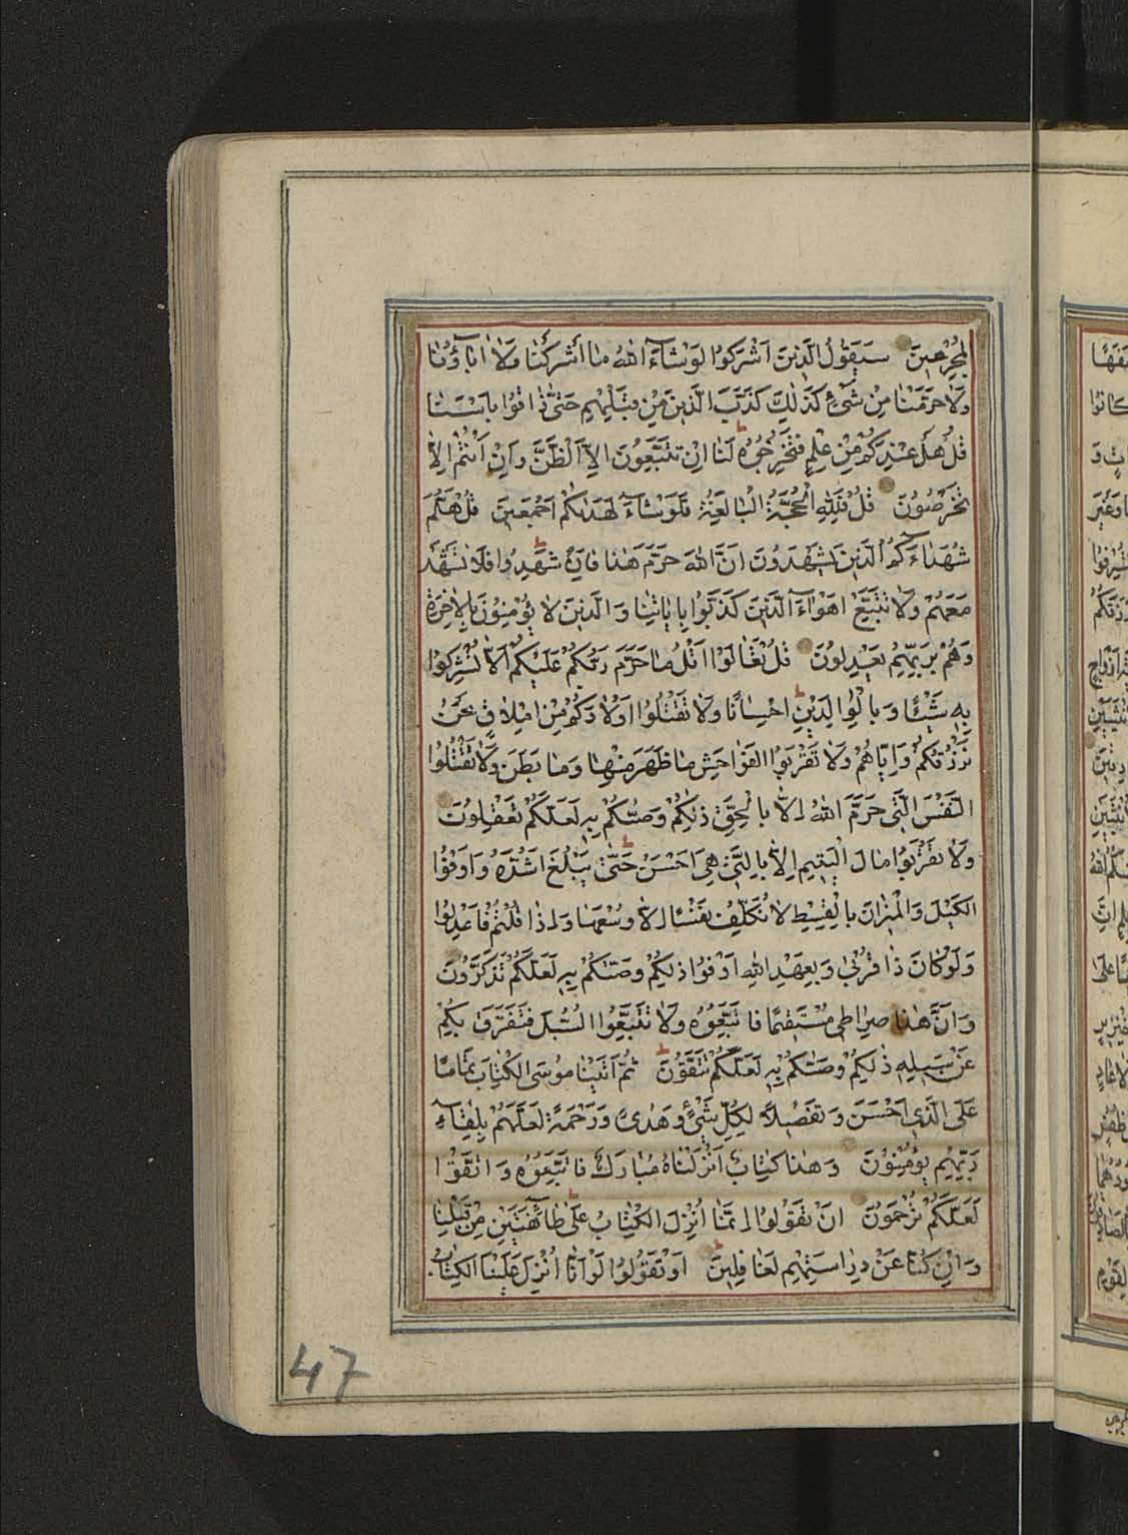 المجرمين سيقول الذين اشركوا لوشاء الله ما اشركنا ولا اباؤنا
ولا حرمنا من شئ كذلك كذب الذين من قبلهم حتى ذاقوا باسنا
قل هل عندكم من علم فتخرجوه لنا ان تتبعون الا الظن وان انتم الا
تخرصون قل فلله الحجة البالغة فلوشاء لهديكم اجمعين قل هلم
شهداءكم الذين يشهدون ان الله حرم هذا فان شهدوا فلا تشهد
معهم ولا تتبع اهواء الذين كذبوا باياتنا والذين لا يؤمنون بالاخرة
وهم بربهم يعدلون قل تعالوا اتل ما حرم ربكم عليكم الا تشركوا
به شيئا وبالوالدين احسانا ولا تقتلوا اولادكم من املاق نحن
نرزقكم واياهم ولا تقربوا الفواحش ما ظهر منها وما بطن ولا تقتلوا
النفس التى حرم الله الا بالحق ذلكم وصيكم به لعلكم تعقلون
ولا تقربوا مال اليتيم الا بالتى هى احسن حتى يبلغ اشده واوفوا
الكيل والميزان بالقسط لا نكلف نفسا الا وسعها واذا قلتم فاعدلوا
ولو كان ذا قربى وبعهد الله اوفوا ذلكم وصيكم به لعلكم تذكرون
وان هذا صراطى مستقيما فاتبعوه ولا تتبعوا السبل فتفرق بكم
عن سبيله ذلكم وصيكم به لعلكم تتقون ثم اتينا موسى الكتاب تماما
على الذى احسن وتفصيلا لكل شئ وهدى ورحمة لعلهم بلقاء
ربهم يؤمنون وهذا كتاب انزلناه مبارك فاتبعوه واتقوا
لعلكم ترحمون ان تقولوا انما انزل الكتاب على طائفتين من قبلنا
وان كنا عن دراستهم لغافلين او تقولوا لو انا انزل علينا الكتاب
47